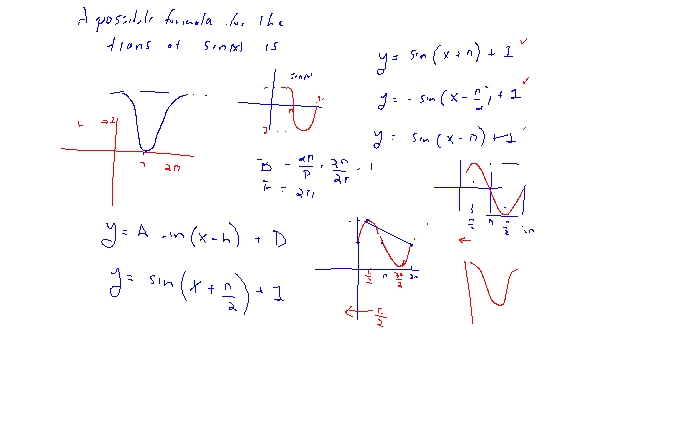 A possible formula for the
trans of sin(x) is
y = sin(x + π) + 1 ✓
y = - sin(x - π/2) + 1 ✓
y = sin(x - π) + 1
sin(x)
2
π 2π
π
B = 2π/P = 2π/2π = 1
P = 2π
y = A sin(x-h) + D
y = sin(x + π/2) + 1
π/2 π 3π/2 2π
π/2
π/2 π 2π